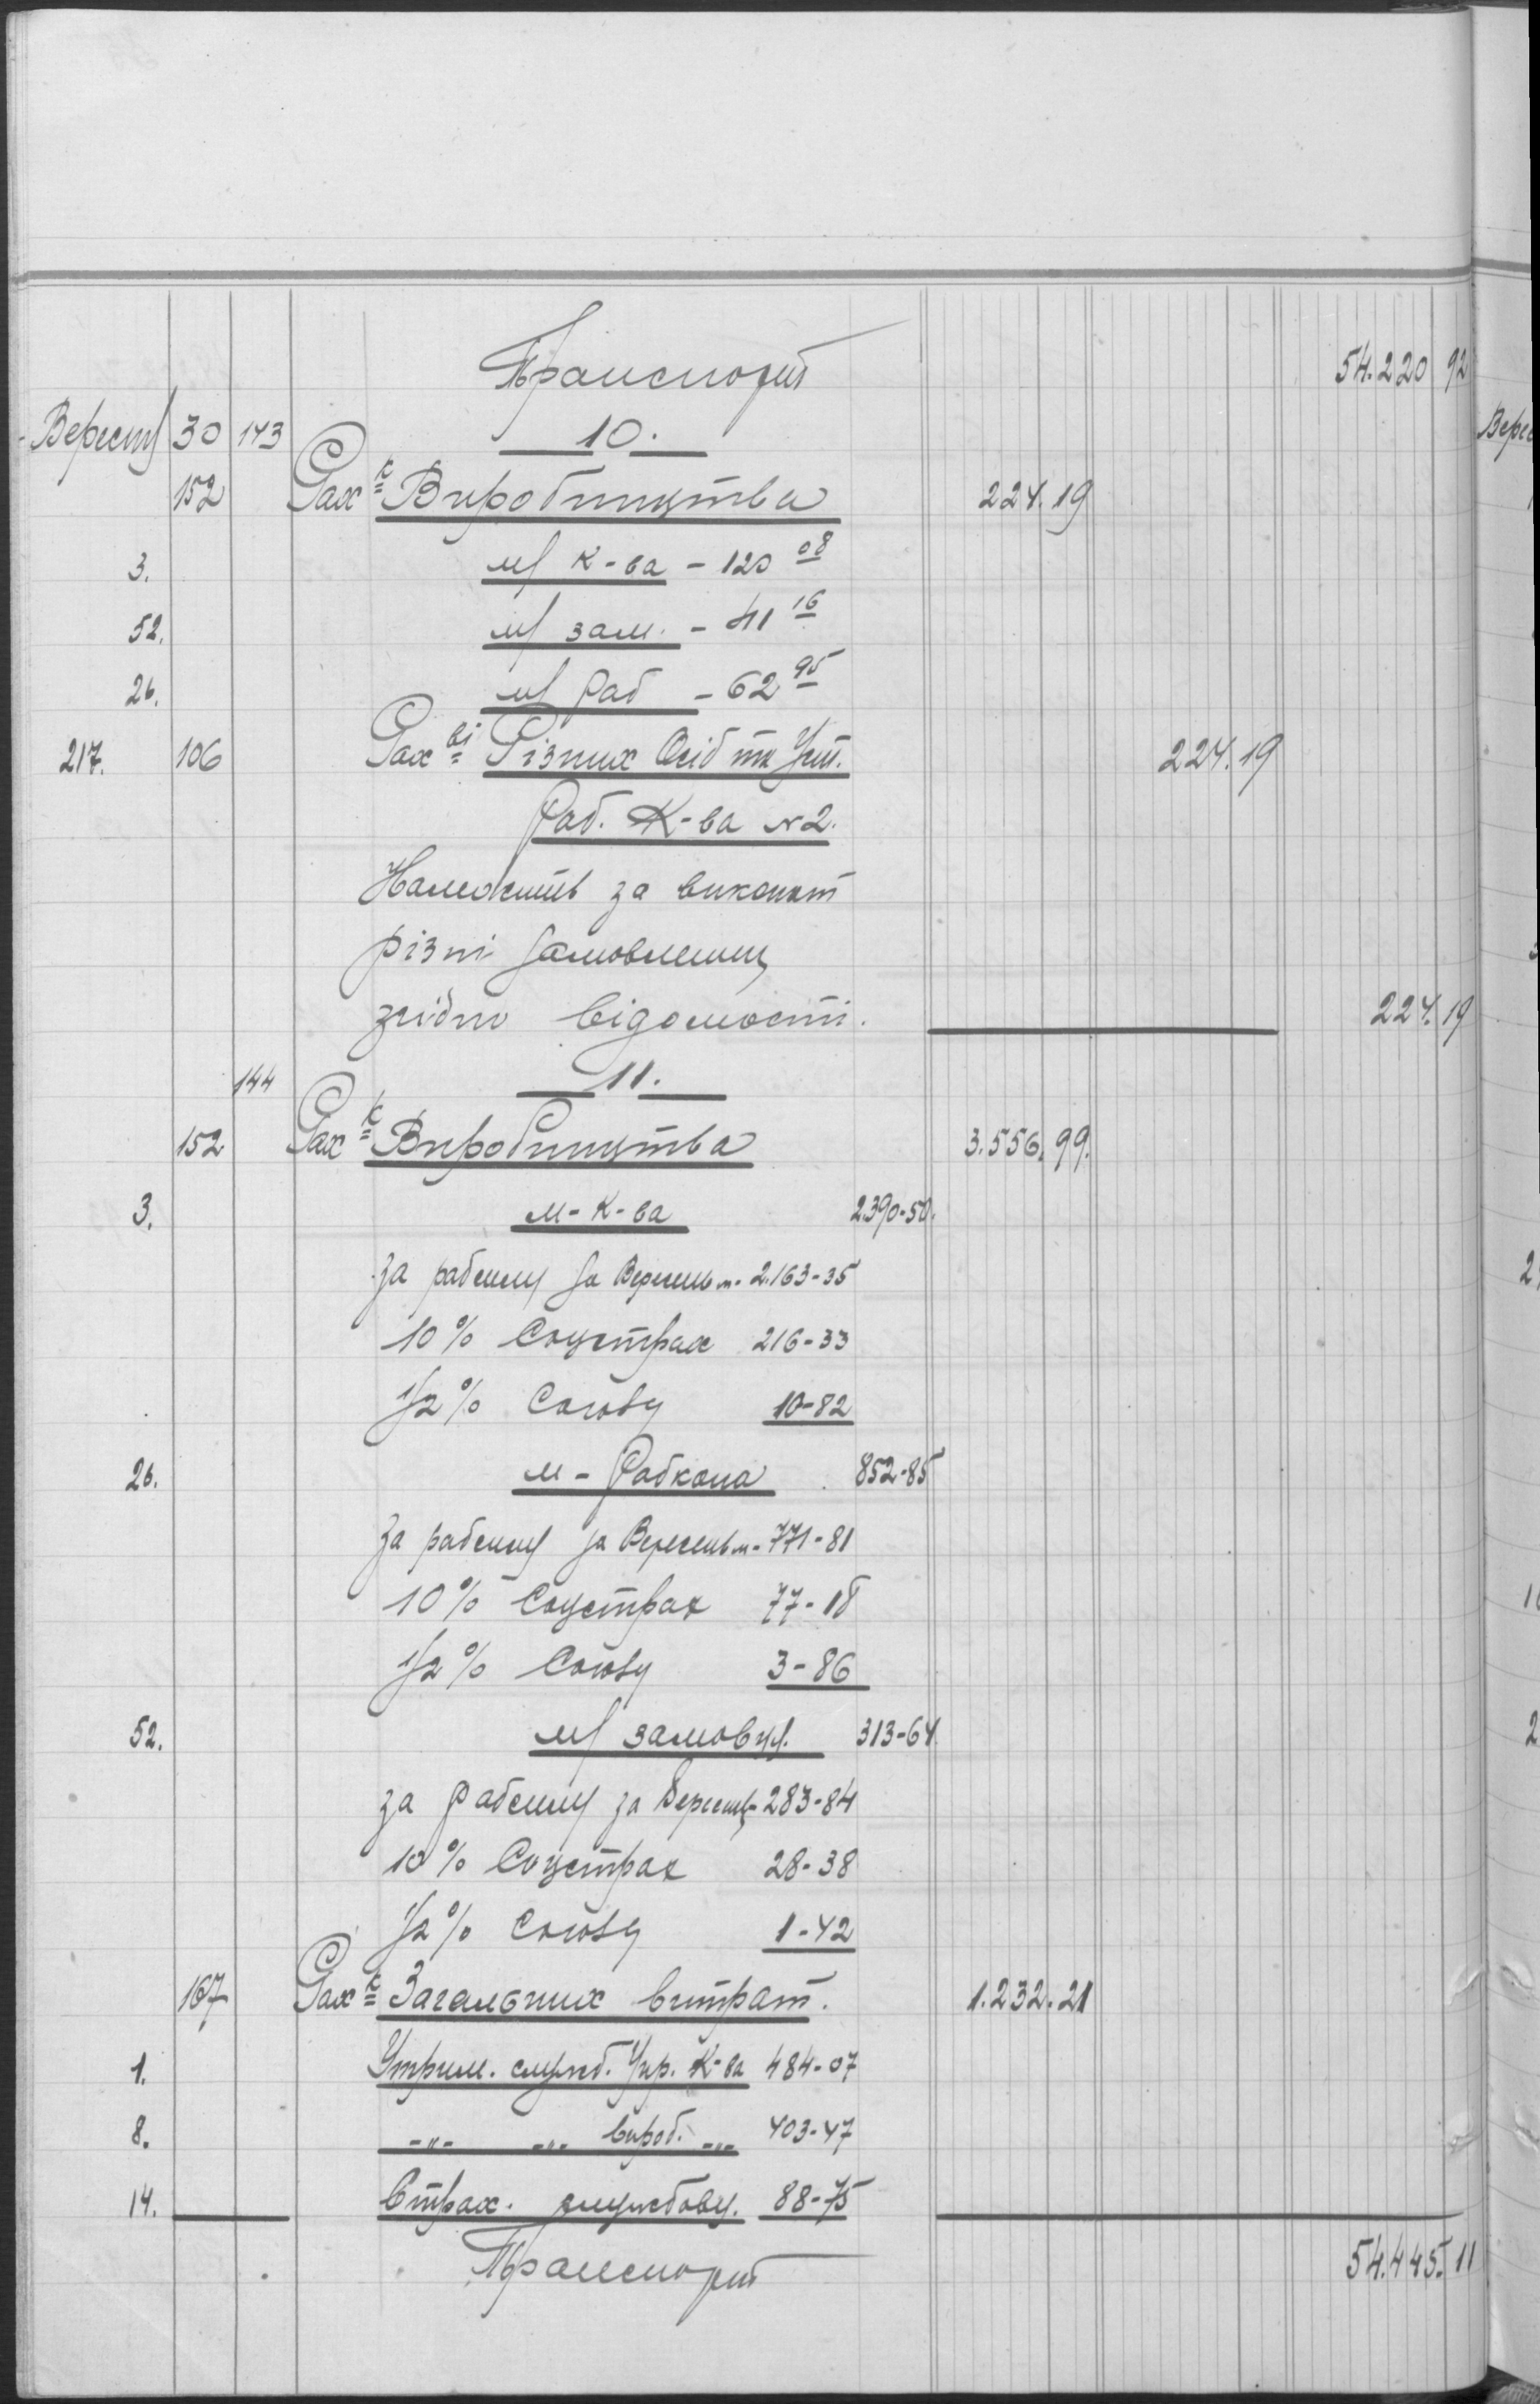 Транспорт 54.220 92
Вересня 30 143 10.
152 Рах-к Виробництва 224.19
3. м/ К-ва - 120 08
52. м/ зам. - 41 16
26. м/ Раб - 62 95
217. 106 Рах-ві Різних Осіб та Уст. 224.19
Раб. К-ва №2.
Належить за виконан
різні замовлення
згідно відомості. 224.19
144 11.
152 Рах-к Виробництва 3.556.99.
3. м-К-ва 2390-50.
за работу за Вересень м- 2.163-35
10% Соцстрах 216-33
1/2% Союзу 10-82
26. м-Рабкопа 852-85
За работу за Вересень м- 771-81
10% Соцстрах 77-18
1/2% Союзу 3-86
52. м/ замовц. 313-64
за работу за Вересень- 283-84
10% Соцстрах 28-38
1/2% Союзу 1-42
167 Рах-к Загальних витрат. 1.232.21
1. Утрим. служб. Упр. К-ва 484-07
8. -„- -„- вироб. -„- 403-47
14. Страх. службовц. 88-75
Транспорт 54.445.11